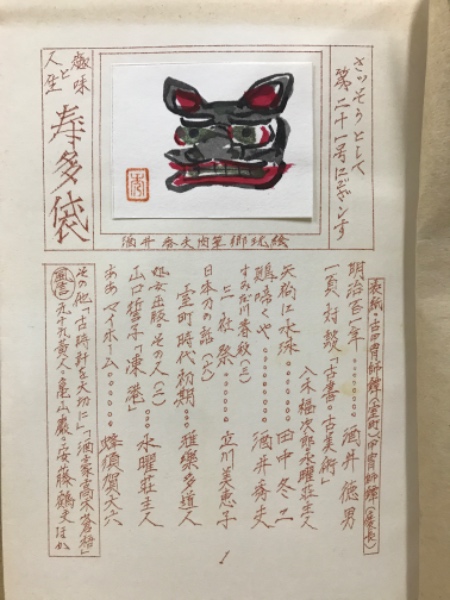 さっそうとして
第二十一号にござんす
趣味と人生
寿多袋
酒井春夫肉筆郷玩絵
表紙・古甲冑師鐔(室町)甲冑師鐔(慶長)
明治百年・・・・・・酒井徳男
一頁対談「古書・古美術」
八木福次郎・水曜荘主人
矢狗に水泳・・・・・・田中冬二
鶏啼くや・・・・・・酒井秀夫
すみだ川春秋(三)
三社祭・・・・・・立川美恵子
日本刀の話(七)
室町時代初期・・・雅楽多道人
処女出版・その人(二)
山口誓子「凍港」・・・水曜荘主人
ああマイホーム・・・・・・蜂須賀大六
その他「古時計を大切に」「酒豪高木蒼梧」
九十九黄人・亀山巌・安藤鶴夫ほか